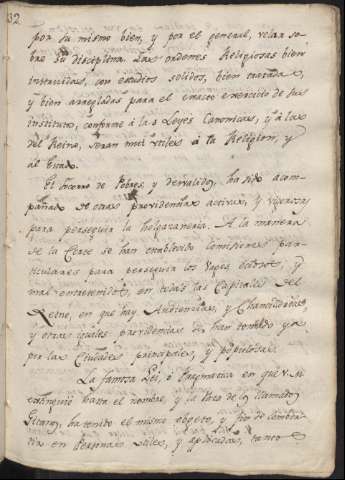 32
por su mismo bien, y por el general, velar so-
bre su disciplina. Las ordenes Religiosas bien
instruidas, con estudios solidos, bien
y bien arregladas para el exacto exercicio de sus
institutos, conforme á las Leyes Canonicas, y á las
del Reino, seran mui utiles á la Religion, y
al Estado.
El socorro de Pobres, y desvalidos, ha sido acom-
pañado de otras providencias activas, y vigorosas
para perseguir la holgazaneria. A la manera
de la Corte se han establecido comisiones par-
ticulares para perseguir los Vagos, ociosos, y
mal entretenidos, en todas las Capitales del
Reino, en que hay Audiencias, y Chancillerias,
y otras iguales providencias se han tomado ya
por las Ciudades principales, y populosas.
La famosa Lei, ó Pragmatica en que V. M.
extinguió hasta el nombre, y la de los llamados
Gitanos, ha tenido el mismo objeto, y
en Personas utiles, y aplicadas, tanto